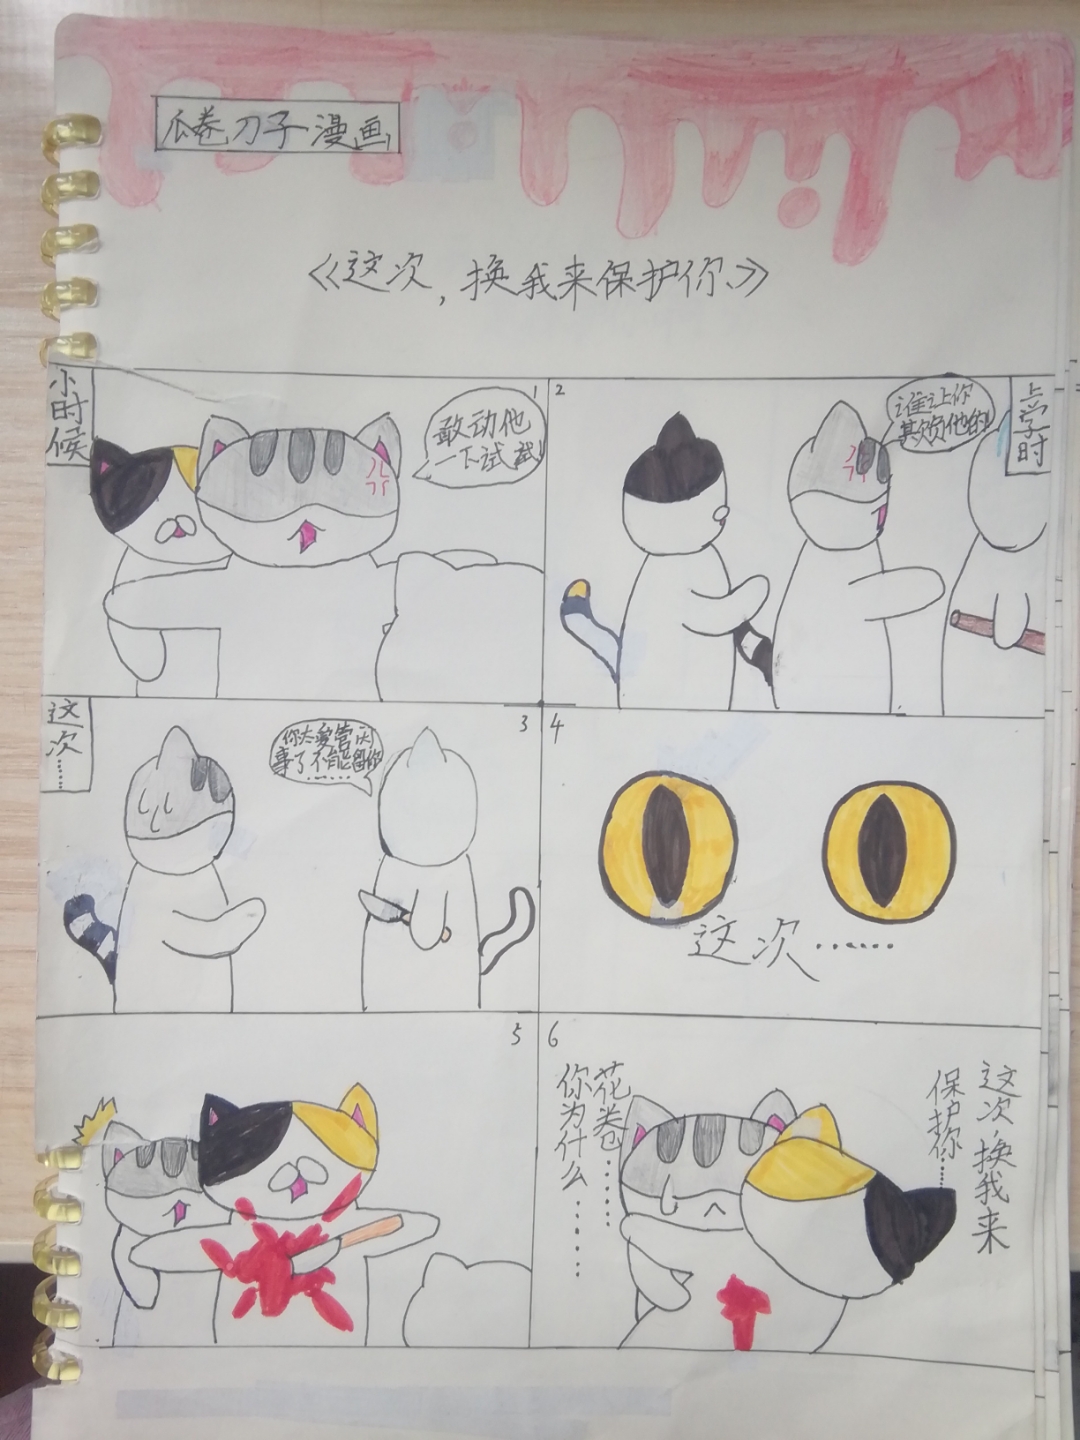 瓜卷刀子漫画
《这次,换我来保护你》
小时候
1
敢动他
一下试试
2
谁让你
欺负他的
上学时
这次……
3
你太爱管闲
事了不能留你
……
4
这次……
5
6
花卷……
你为什么……
这次,换我来
保护你……